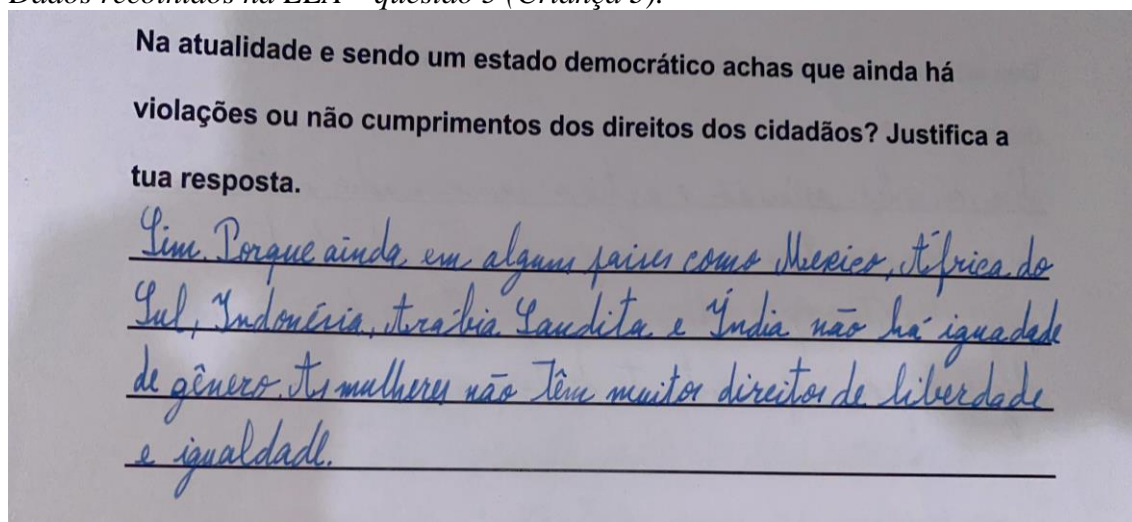 Dados recolhidos na EEA – questão 3 (Criança 3).
Na atualidade e sendo um estado democrático achas que ainda há
violações ou não cumprimentos dos direitos dos cidadãos? Justifica a
tua resposta.
Sim. Porque ainda em alguns paises como Mexico, África do
Sul, Indonésia, Arabia Saudita e Índia não há iguadade
de gênero. As mulheres não têm muitos direitos de liberdade
e igualdade.